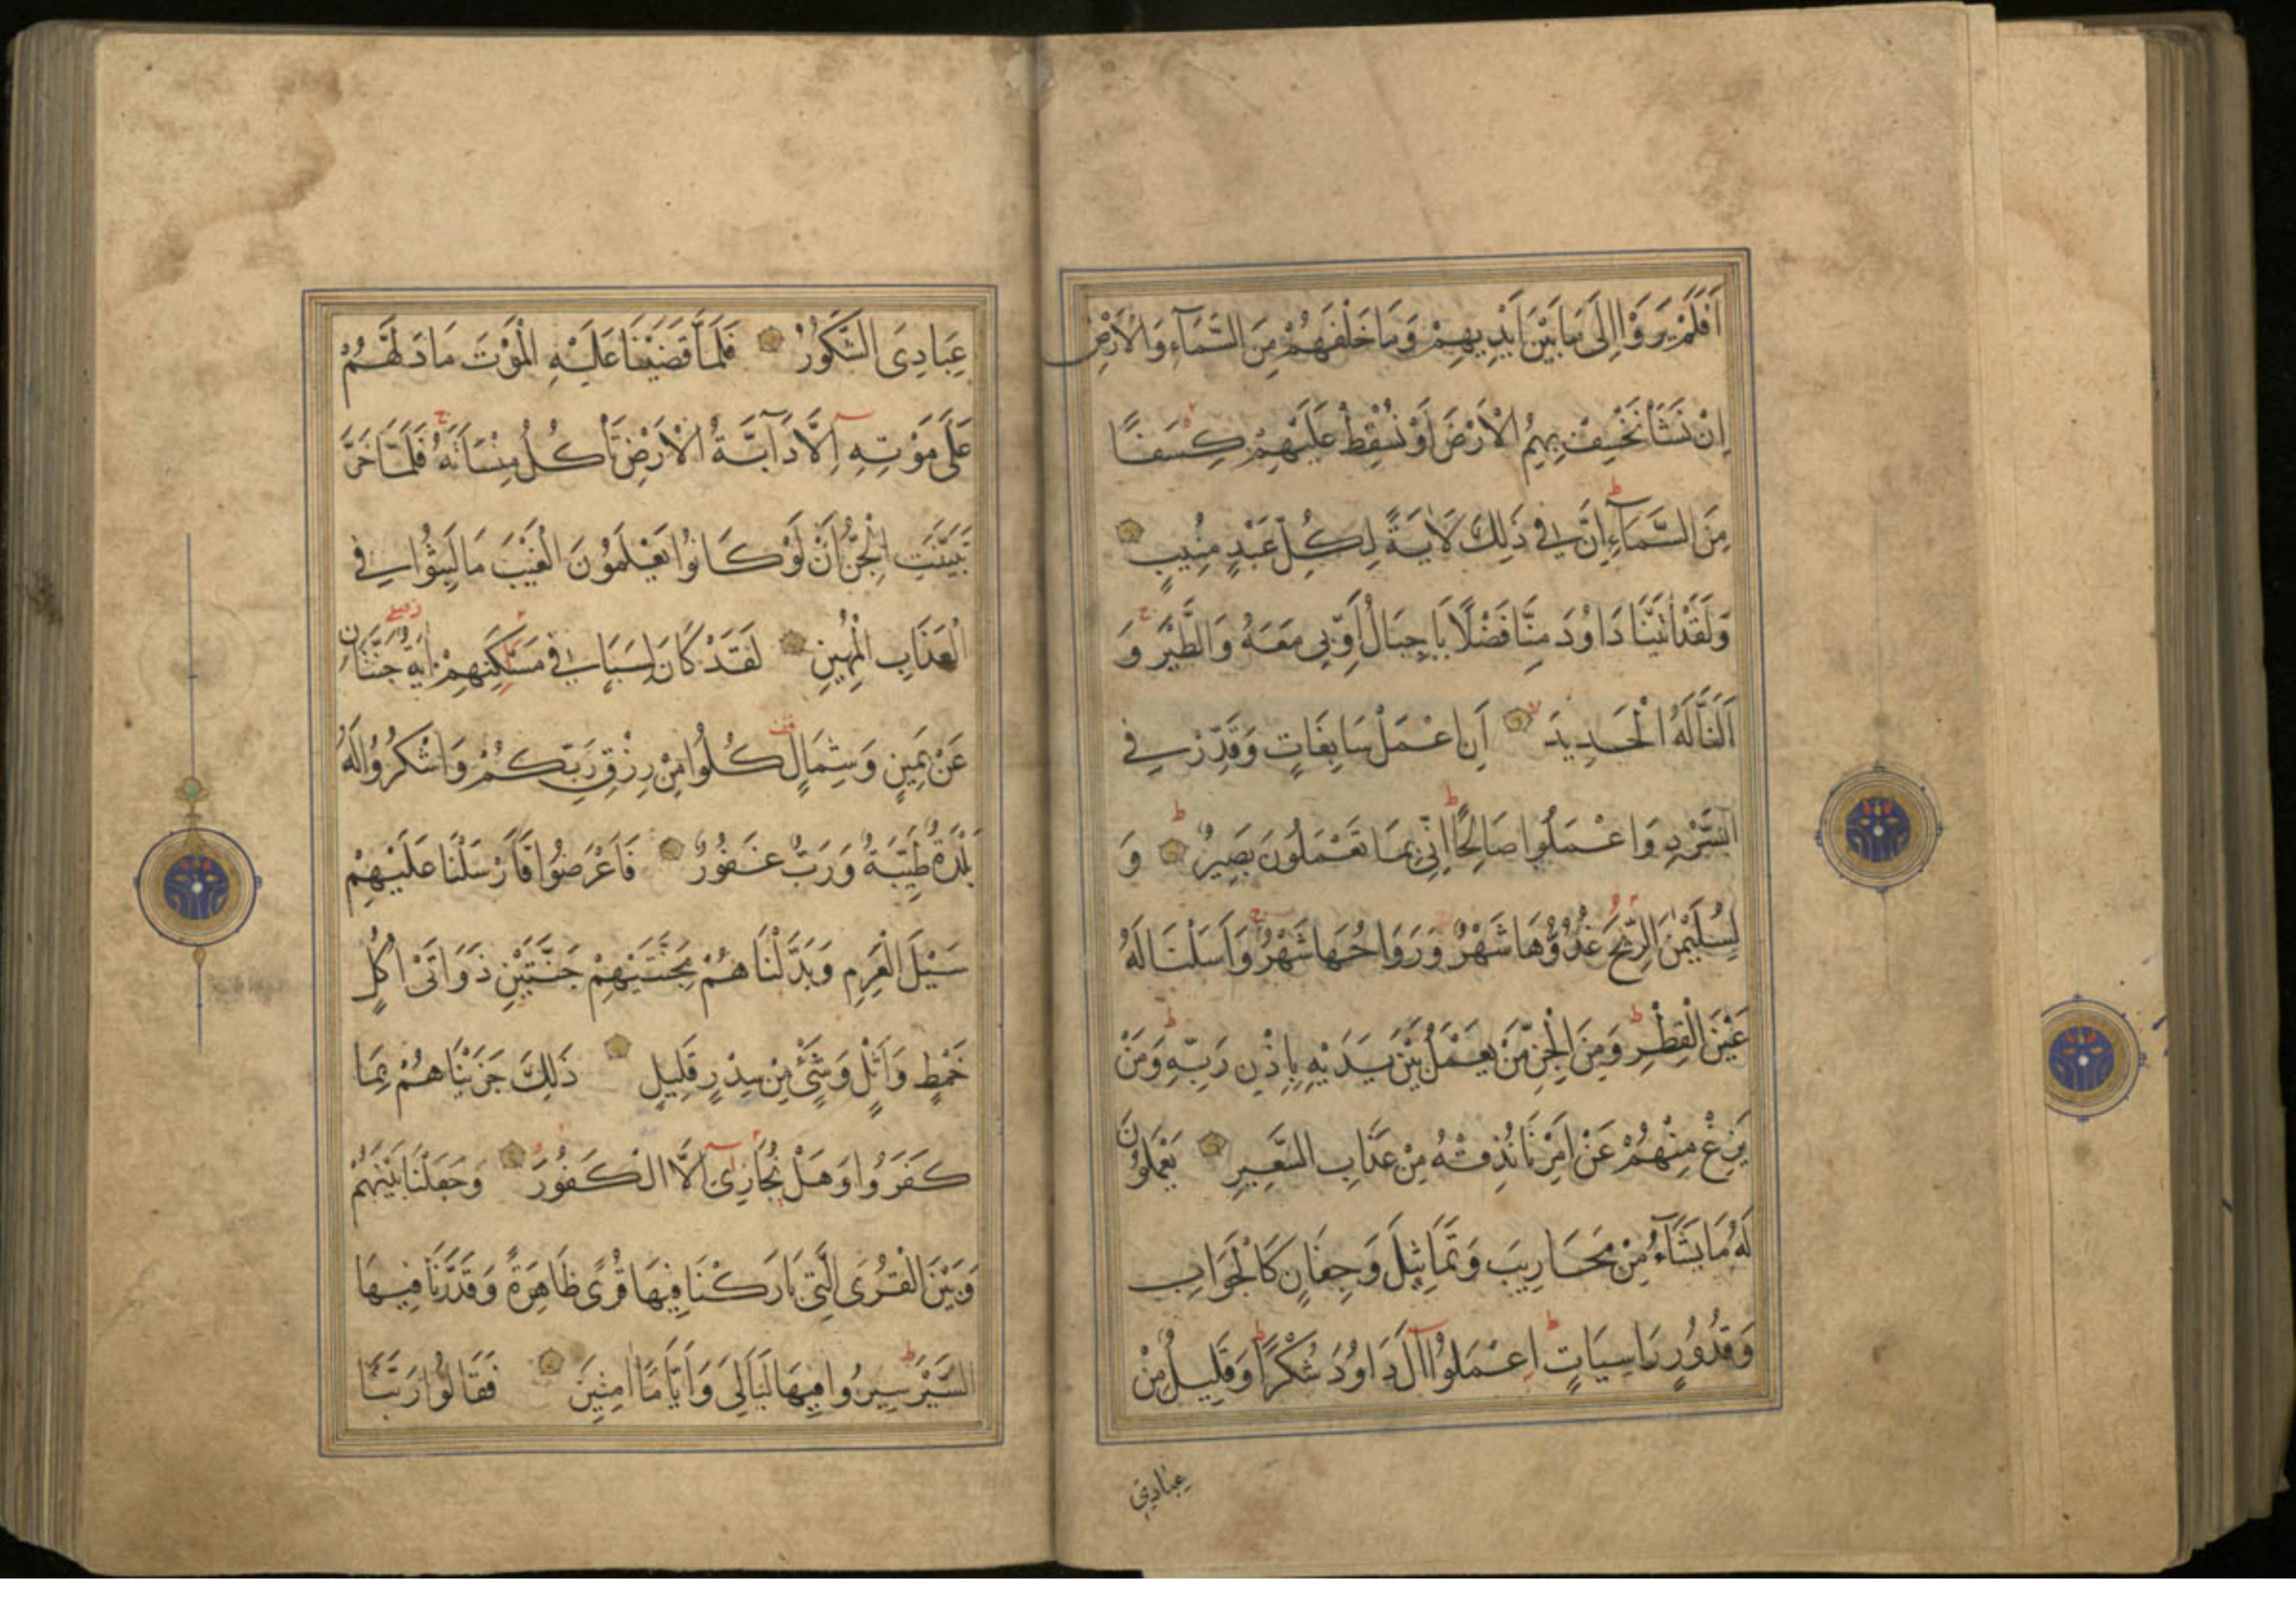 اَفَلَمْ يَرَوْا اِلٰى مَا بَيْنَ اَيْدِيهِمْ وَمَا خَلْفَهُمْ مِنَ السَّمَآءِ وَالْاَرْضِ
اِنْ نَشَأْ نَخْسِفْ بِهِمُ الْاَرْضَ اَوْ نُسْقِطْ عَلَيْهِمْ كِسَفًا
مِنَ السَّمَآءِ اِنَّ فِي ذٰلِكَ لَاٰيَةً لِكُلِّ عَبْدٍ مُنِيبٍ
وَلَقَدْ اٰتَيْنَا دَاوُدَ مِنَّا فَضْلًا يَا جِبَالُ اَوِّبِي مَعَهُ وَالطَّيْرَ وَ
اَلَنَّا لَهُ الْحَدِيدَ اَنِ اعْمَلْ سَابِغَاتٍ وَقَدِّرْ فِي
السَّرْدِ وَاعْمَلُوا صَالِحًا اِنِّي بِمَا تَعْمَلُونَ بَصِيرٌ وَ
لِسُلَيْمٰنَ الرِّيحَ غُدُوُّهَا شَهْرٌ وَرَوَاحُهَا شَهْرٌ وَاَسَلْنَا لَهُ
عَيْنَ الْقِطْرِ وَمِنَ الْجِنِّ مَنْ يَعْمَلُ بَيْنَ يَدَيْهِ بِاِذْنِ رَبِّهِ وَمَنْ
يَزِغْ مِنْهُمْ عَنْ اَمْرِنَا نُذِقْهُ مِنْ عَذَابِ السَّعِيرِ يَعْمَلُونَ
لَهُ مَا يَشَآءُ مِنْ مَحَارِيبَ وَتَمَاثِيلَ وَجِفَانٍ كَالْجَوَابِ
وَقُدُورٍ رَاسِيَاتٍ اِعْمَلُوا آلَ دَاوُدَ شُكْرًا وَقَلِيلٌ مِنْ
عِبَادِيَ
عِبَادِيَ الشَّكُورُ فَلَمَّا قَضَيْنَا عَلَيْهِ الْمَوْتَ مَا دَلَّهُمْ
عَلٰى مَوْتِهِ اِلَّا دَآبَّةُ الْاَرْضِ تَأْكُلُ مِنْسَاَتَهُ فَلَمَّا خَرَّ
تَبَيَّنَتِ الْجِنُّ اَنْ لَوْ كَانُوا يَعْلَمُونَ الْغَيْبَ مَا لَبِثُوا فِي
الْعَذَابِ الْمُهِينِ لَقَدْ كَانَ لِسَبَإٍ فِي مَسْكَنِهِمْ اٰيَةٌ جَنَّتَانِ
عَنْ يَمِينٍ وَشِمَالٍ كُلُوا مِنْ رِزْقِ رَبِّكُمْ وَاشْكُرُوا لَهُ
بَلْدَةٌ طَيِّبَةٌ وَرَبٌّ غَفُورٌ فَاَعْرَضُوا فَاَرْسَلْنَا عَلَيْهِمْ
سَيْلَ الْعَرِمِ وَبَدَّلْنَاهُمْ بِجَنَّتَيْهِمْ جَنَّتَيْنِ ذَوَاتَىْ اُكُلٍ
خَمْطٍ وَاَثْلٍ وَشَيْءٍ مِنْ سِدْرٍ قَلِيلٍ ذٰلِكَ جَزَيْنَاهُمْ بِمَا
كَفَرُوا وَهَلْ نُجَازِي اِلَّا الْكَفُورَ وَجَعَلْنَا بَيْنَهُمْ
وَبَيْنَ الْقُرَى الَّتِي بَارَكْنَا فِيهَا قُرًى ظَاهِرَةً وَقَدَّرْنَا فِيهَا
السَّيْرَ سِيرُوا فِيهَا لَيَالِيَ وَاَيَّامًا اٰمِنِينَ فَقَالُوا رَبَّنَا